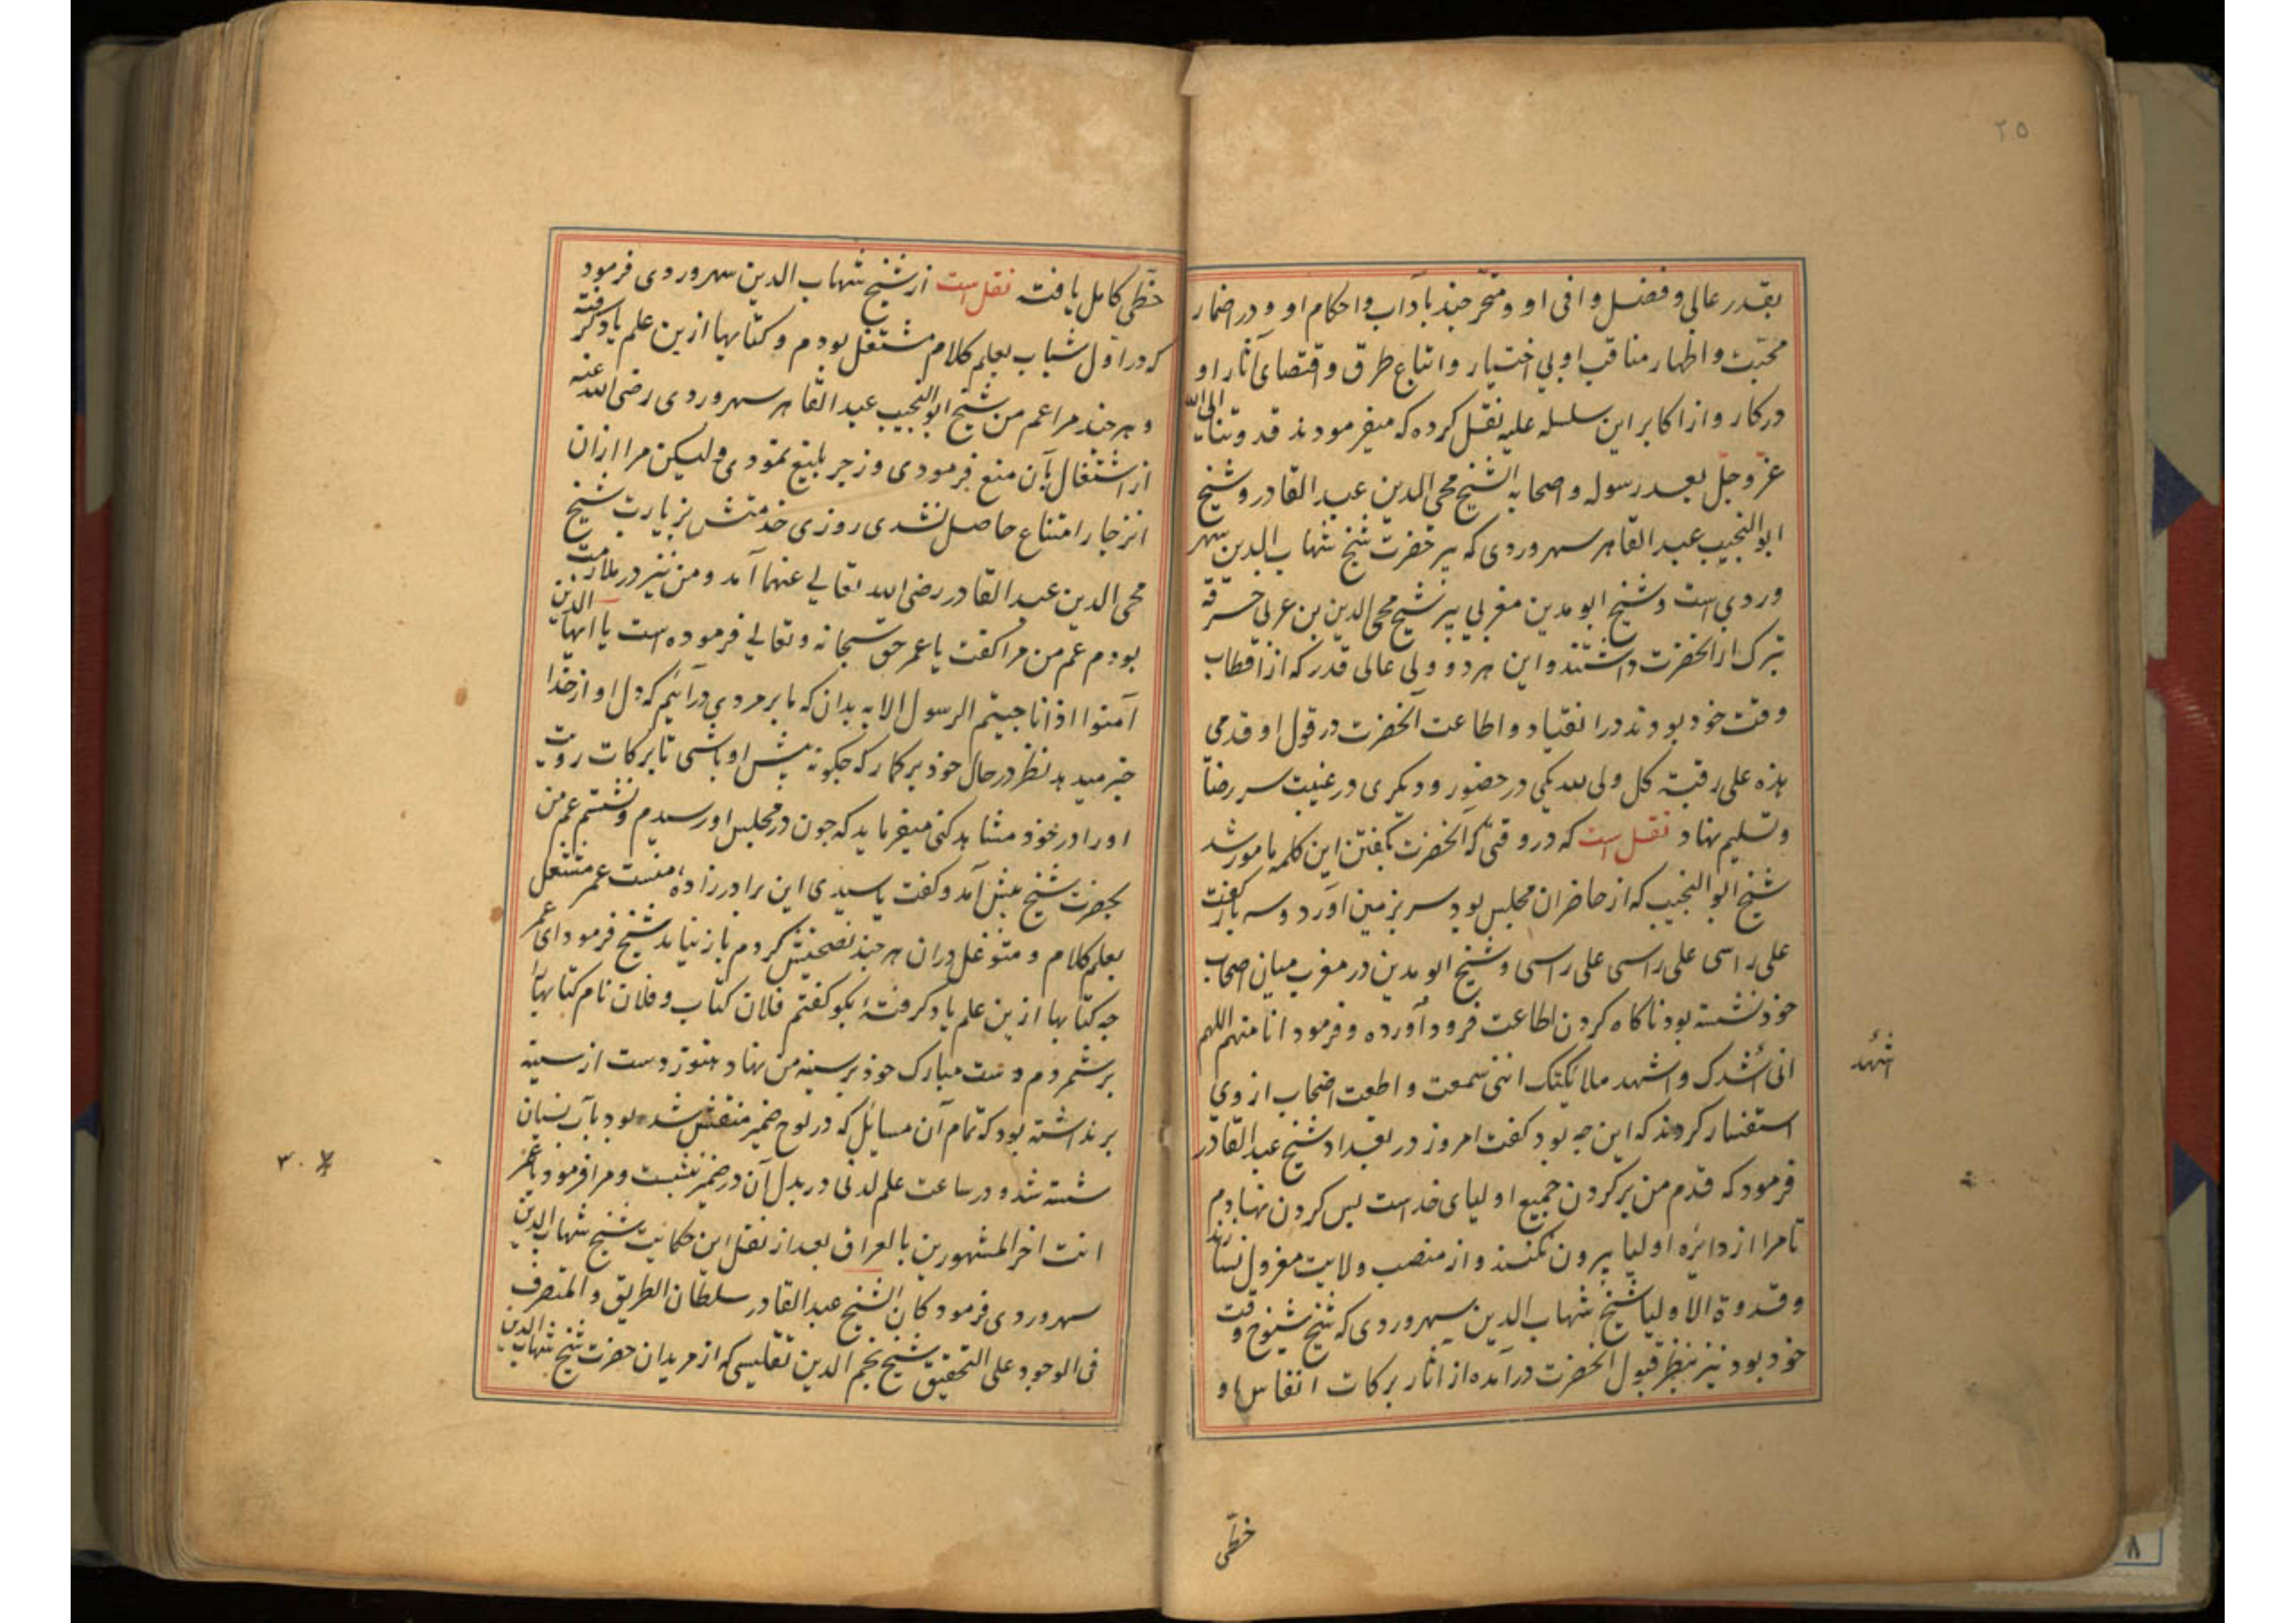 ٢٥
بقدر عالی و فضل وافی او و متحر جند بآداب و احکام او و در اضمار
محبّت و اظهار مناقب او بی اختیار و اتباع طرق و اقتصای آثار او
در کار و از اکابر این سلسله علیه نقل کرده که میفرمودند قدوتنا الی الله
عزّ و جلّ بعد رسوله و اصحابه الشیخ محی الدین عبد القادر و شیخ
ابو النجیب عبد القاهر سهروردی که پیر حضرت شیخ شهاب الدین سهر
وردی است و شیخ ابو مدین مغربی پیر شیخ محی الدین بن عربی خرقه
تبرک از آنحضرت داشتند و این هر دو ولی عالی قدر که از اقطاب
وقت خود بودند در انقیاد و اطاعت آنحضرت در قول او قدمی
هذه علی رقبة کل ولی لله یکی در حضور و دیکری در غیبت سر رضا
و تسلیم نهاد نقل است که در وقتی که آنحضرت بکفتن این کلمه مامور شد
شیخ ابو النجیب که از حاضران مجلس بود سر بزمین آورد و سه بار کفت
علی راسی علی راسی علی راسی و شیخ ابو مدین در مغرب میان اصحاب
خود نشسته بود ناکاه کردن اطاعت فرود آورده و فرمود انا منهم اللهم
انی أشدک و اشهد ملائکتک اننی سمعت و اطعت اضحاب از وی
استفسار کردند که این چه بود کفت امروز در بغداد شیخ عبد القادر
فرمود که قدم من بر کردن جمیع اولیای خداست پس کردن نهادم
تا مرا از دائره اولیا بیرون نکنند و از منصب ولایت معزول نسازند
و قدوة الاولیا شیخ شهاب الدین سهروردی که شیخ شیوخ وقت
خود بود نیز بنظر قبول آنحضرت در آمده از آثار برکات انفاس او
أشهد
حظّی
حظّی کامل یافته نقل است از شیخ شهاب الدین سهروردی فرمود
که در اوّل شباب بعلم کلام مشتغل بودم و کتابها ازین علم یاد کرفته
و هر چند مرا عم من شیخ ابو النجیب عبد القاهر سهروردی رضی الله عنه
از اشتغال بآن منع فرمودی و زجر بلیغ نمودی ولیکن مرا ازان
انزجار و امتناع حاصل نشدی روزی خدمتش بزیارت شیخ
محی الدین عبد القادر رضی الله تعالی عنهما آمد و من نیز در ملازمت
بودم عم من مرا کفت یا عمر حق سبحانه و تعالی فرموده است یا ایها الذین
آمنوا اذا ناجیتم الرسول الایه بدان که ما بر مردی در آئیم که دل او از خدا
خبر میدهد نظر در حال خود بر کمار که چکونه پیش او باشی تا برکات رویت
او را در خود مشاهد کنی میفرماید که چون در مجلس او رسیدم و نشستم عم من
بحضرت شیخ پیش آمد و کفت یا سیدی این برادر زادهٔ منست عمر مشتغل
بعلم کلام و متوغل دران هر چند نصحیتش کردم باز نیاید شیخ فرمود ای عمر
چه کتابها ازین علم یاد کرفتهٔ بکو کفتم فلان کتاب و فلان نام کتابها را
بر شمردم دست مبارک خود بر سینه من نهاد هنوز دست از سینه
برنداشته بود که تمام آن مسایل که در لوح ضمیر منقش شده بود بآب نسیان
شسته شد و در ساعت علم لدنی در بدل آن در ضمیر بنشست و مرا فرمود یا عمر
انت اخر المشهورین بالعراق بعد از نقل این حکایت شیخ شهاب الدین
سهروردی فرمود کان الشیخ عبد القادر سلطان الطریق و المتصرف
فی الوجود علی التحقیق شیخ نجم الدین تفلیسی که از مریدان حضرت شیخ شهاب الدین
٨